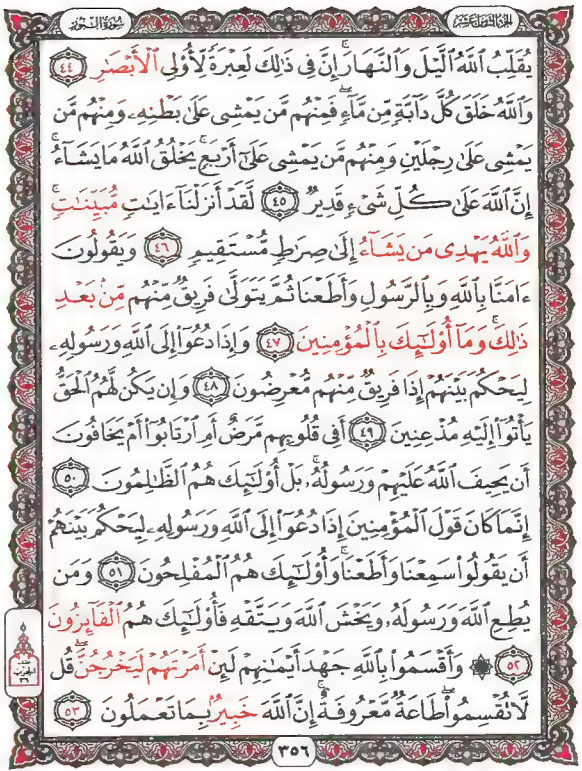 الجزء الثامن عشر
سورة النور
يُقَلِّبُ ٱللَّهُ ٱلَّيْلَ وَٱلنَّهَارَ ۚ إِنَّ فِى ذَٰلِكَ لَعِبْرَةً لِّأُو۟لِى ٱلْأَبْصَٰرِ ٤٤
وَٱللَّهُ خَلَقَ كُلَّ دَآبَّةٍ مِّن مَّآءٍ ۖ فَمِنْهُم مَّن يَمْشِى عَلَىٰ بَطْنِهِۦ وَمِنْهُم مَّن
يَمْشِى عَلَىٰ رِجْلَيْنِ وَمِنْهُم مَّن يَمْشِى عَلَىٰٓ أَرْبَعٍ ۚ يَخْلُقُ ٱللَّهُ مَا يَشَآءُ ۚ
إِنَّ ٱللَّهَ عَلَىٰ كُلِّ شَىْءٍ قَدِيرٌ ٤٥ لَّقَدْ أَنزَلْنَآ ءَايَٰتٍ مُّبَيِّنَٰتٍ ۚ
وَٱللَّهُ يَهْدِى مَن يَشَآءُ إِلَىٰ صِرَٰطٍ مُّسْتَقِيمٍ ٤٦ وَيَقُولُونَ
ءَامَنَّا بِٱللَّهِ وَبِٱلرَّسُولِ وَأَطَعْنَا ثُمَّ يَتَوَلَّىٰ فَرِيقٌ مِّنْهُم مِّنۢ بَعْدِ
ذَٰلِكَ ۚ وَمَآ أُو۟لَٰٓئِكَ بِٱلْمُؤْمِنِينَ ٤٧ وَإِذَا دُعُوٓا۟ إِلَى ٱللَّهِ وَرَسُولِهِۦ
لِيَحْكُمَ بَيْنَهُمْ إِذَا فَرِيقٌ مِّنْهُم مُّعْرِضُونَ ٤٨ وَإِن يَكُن لَّهُمُ ٱلْحَقُّ
يَأْتُوٓا۟ إِلَيْهِ مُذْعِنِينَ ٤٩ أَفِى قُلُوبِهِم مَّرَضٌ أَمِ ٱرْتَابُوٓا۟ أَمْ يَخَافُونَ
أَن يَحِيفَ ٱللَّهُ عَلَيْهِمْ وَرَسُولُهُۥ ۚ بَلْ أُو۟لَٰٓئِكَ هُمُ ٱلظَّٰلِمُونَ ٥٠
إِنَّمَا كَانَ قَوْلَ ٱلْمُؤْمِنِينَ إِذَا دُعُوٓا۟ إِلَى ٱللَّهِ وَرَسُولِهِۦ لِيَحْكُمَ بَيْنَهُمْ
أَن يَقُولُوا۟ سَمِعْنَا وَأَطَعْنَا ۚ وَأُو۟لَٰٓئِكَ هُمُ ٱلْمُفْلِحُونَ ٥١ وَمَن
يُطِعِ ٱللَّهَ وَرَسُولَهُۥ وَيَخْشَ ٱللَّهَ وَيَتَّقْهِ فَأُو۟لَٰٓئِكَ هُمُ ٱلْفَآئِزُونَ
٥٢ ۞ وَأَقْسَمُوا۟ بِٱللَّهِ جَهْدَ أَيْمَٰنِهِمْ لَئِنْ أَمَرْتَهُمْ لَيَخْرُجُنَّ ۖ قُل
لَّا تُقْسِمُوا۟ ۖ طَاعَةٌ مَّعْرُوفَةٌ ۚ إِنَّ ٱللَّهَ خَبِيرٌۢ بِمَا تَعْمَلُونَ ٥٣
الحزب
٣٦
٣٥٦